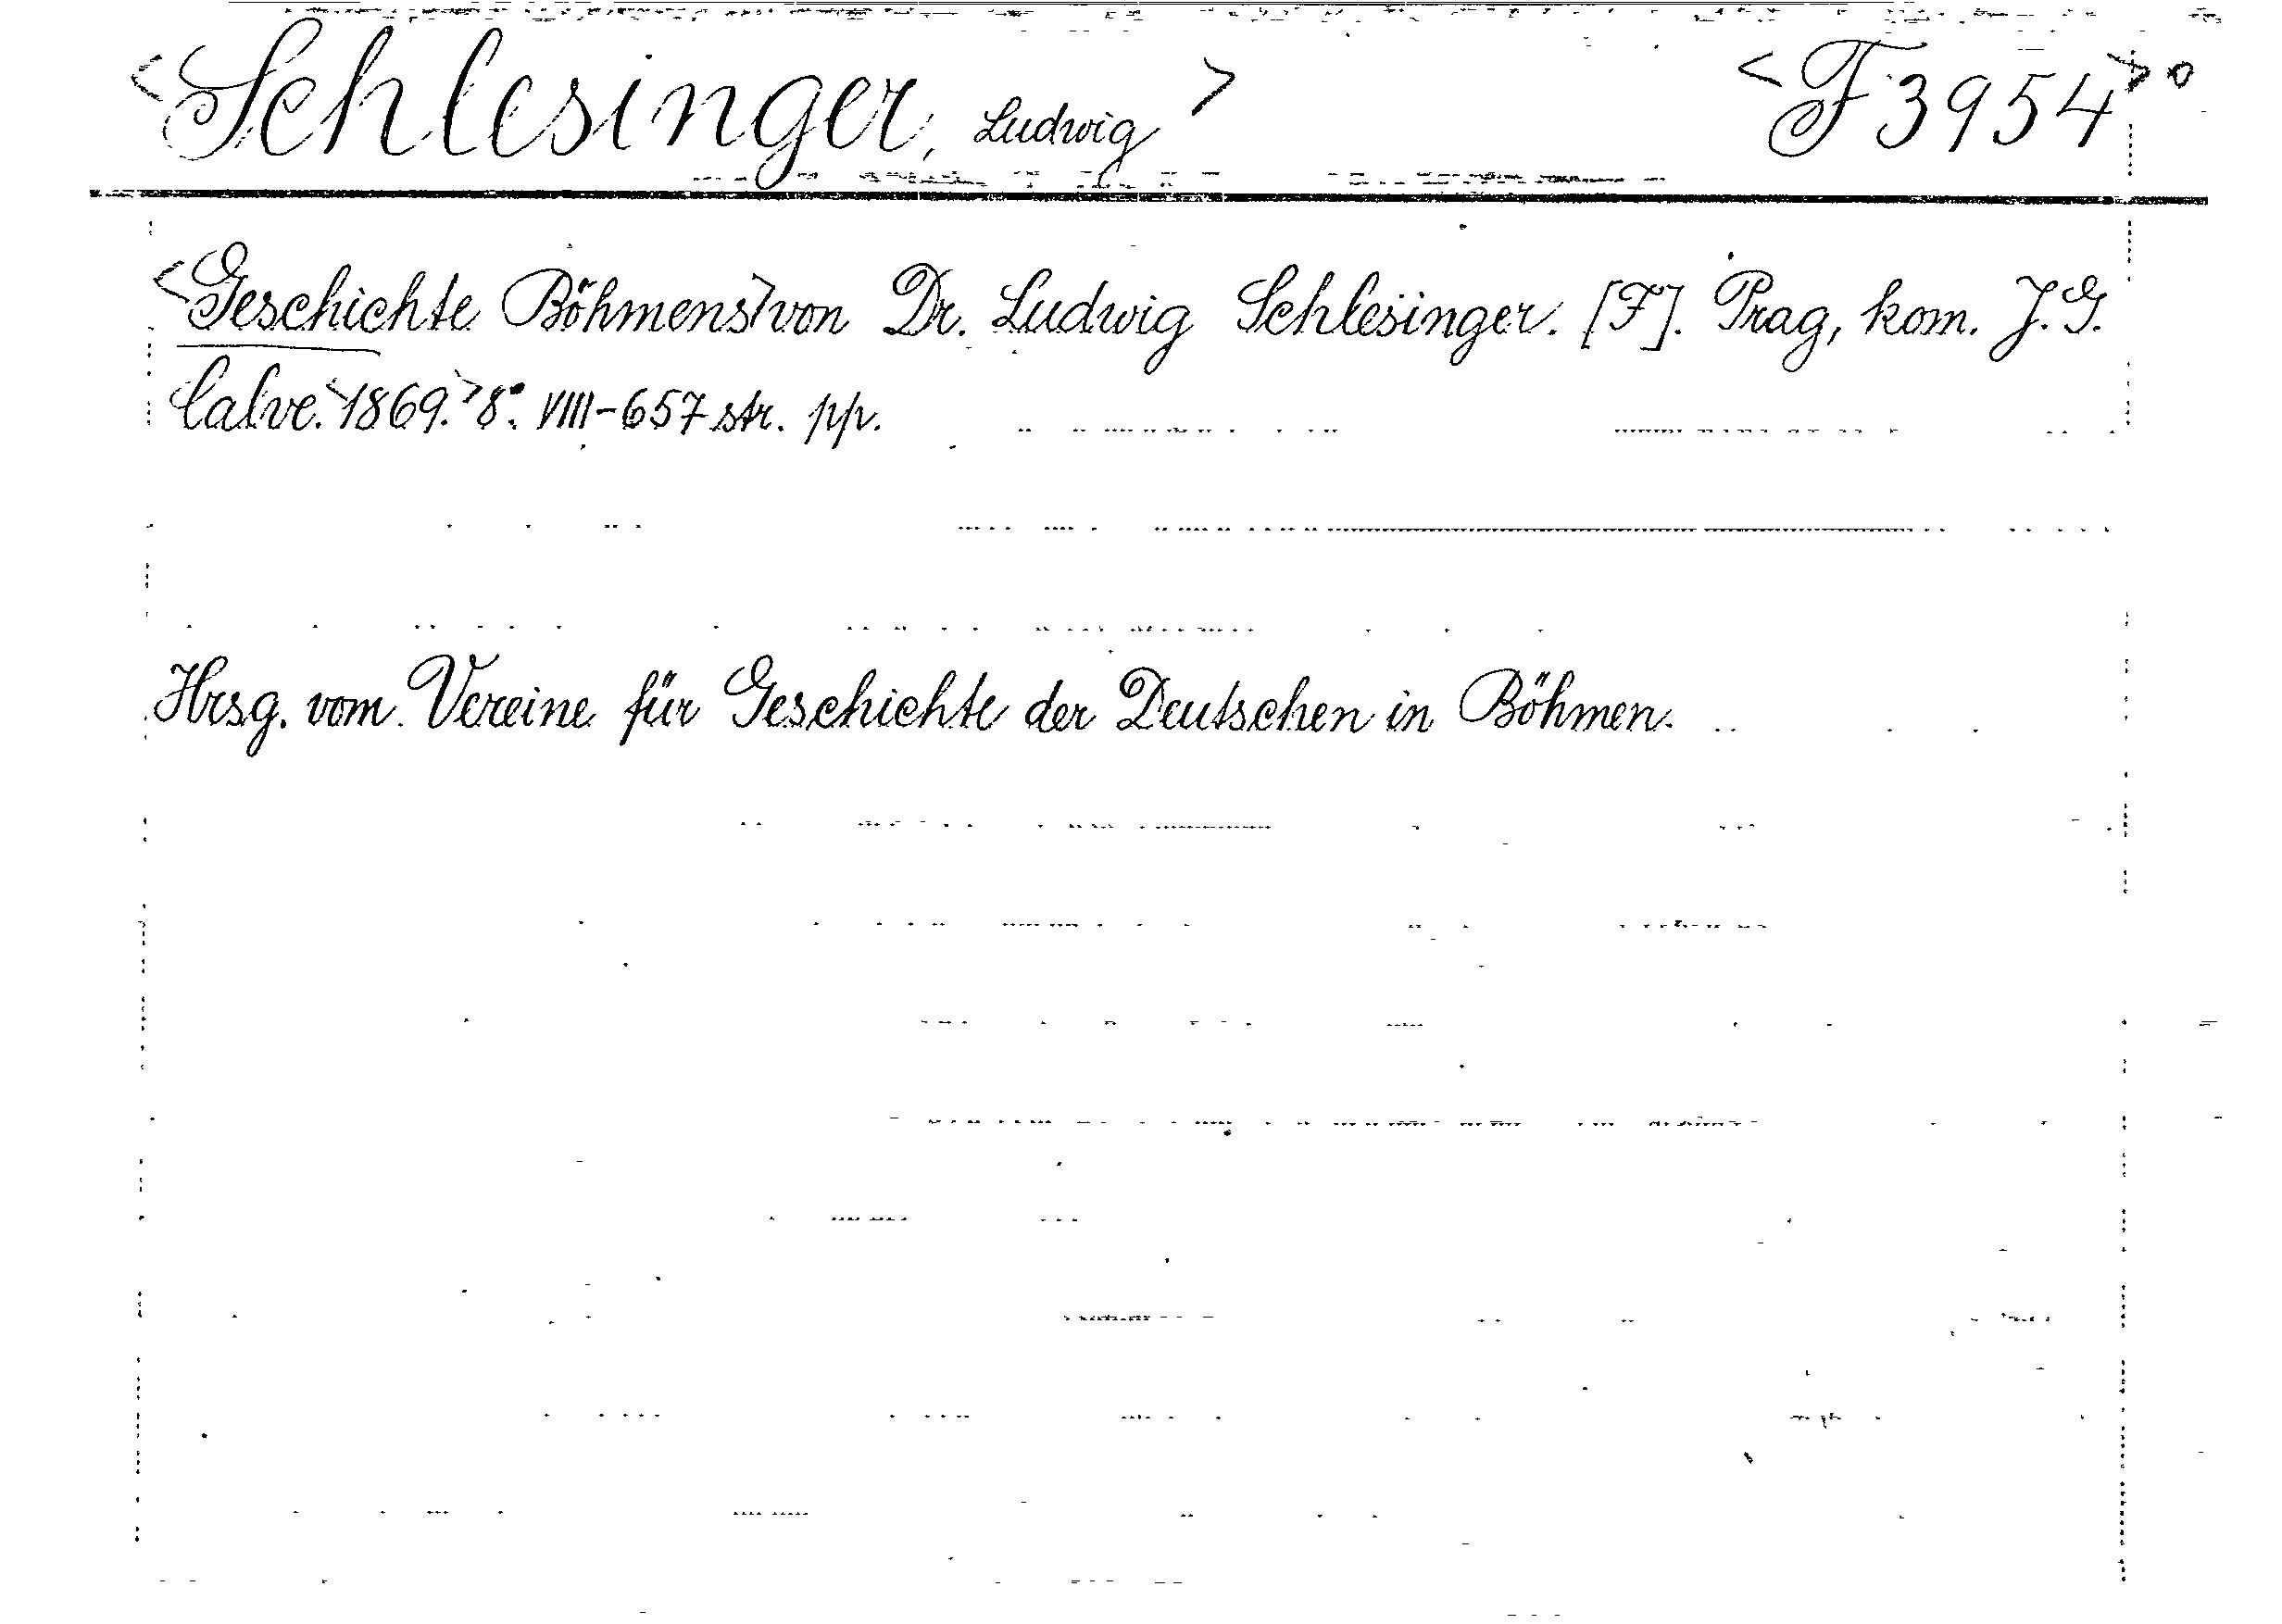 <Schlesinger, Ludwig> <F 3954>°
<Geschichte Böhmens> von Dr. Ludwig Schlesinger. [F]. Prag, kom. J. G.
Calve. <1869.> 8°. VIII-657 str. pp.
Hrsg. vom Vereine für Geschichte der Deutschen in Böhmen.